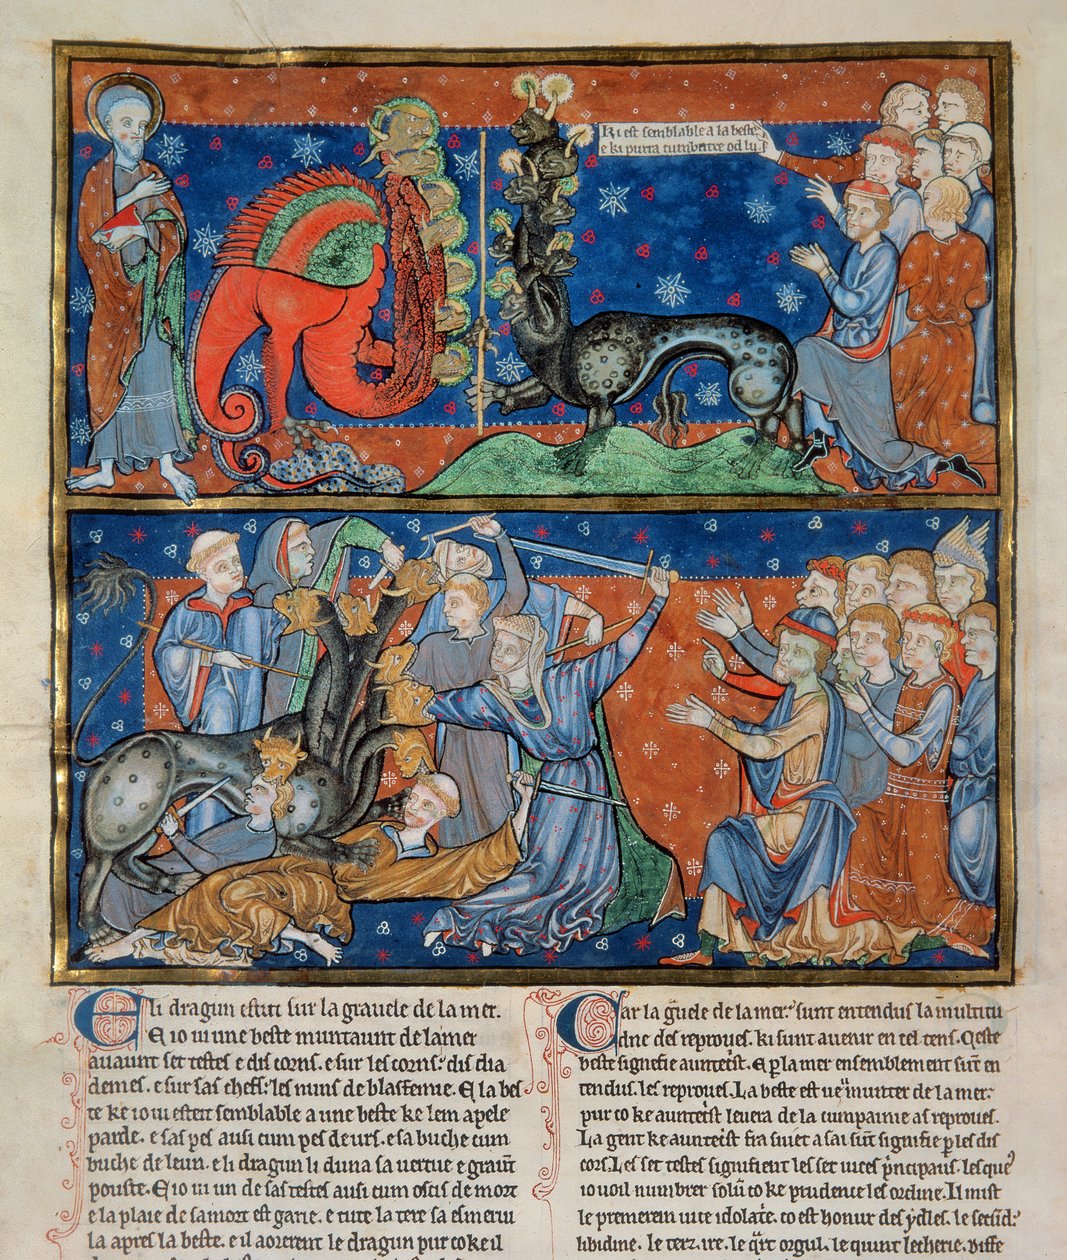 Ki est semblable a la beste.
e ki purra cumbatre od lui
E li dragun estut sur la gravele de la mer.
E io ui une beste muntaunt de la mer
auaunt set testes e dis corns. e sur les corns: dis dia
demes. e sur sas chefs: les nuns de blasfemie. E la bes
te ke io ui esteit semblable a une beste ke lem apele
parde. e sas pes ausi cum pes de urs. e sa buche cum
buche de leun. e li dragun li duna sa uertue e graunt
pouste. E io ui un de sas testes ausi cum ocis de mort
e la plaie de sa mort est garie. e tute la tere sa esmerui
la apres la beste. e il aorerent le dragun pur co ke il
Car la guele de la mer: sunt entendus la multitu
dne des reproues. ki sunt auenir en cel tens. Ceste
beste signefie auntecrist. E par la mer ensemblement sunt en
tendus. les reproues. La beste est ueue munter de la mer:
pur co ke auntecrist leuera de la cumpainie as reproues.
La gent ke auntecrist fra suiet a sai sunt signifie par les dis
cors. Les set testes signifient les set uices principaus. lesques
io uoil numbrer solum co ke prudence les ordine. Il mist
le premerein uice idolatre. co est honur des ydles. le secund:
libidine. le terz. ire. le quart orgul. le quint lecherie. disse